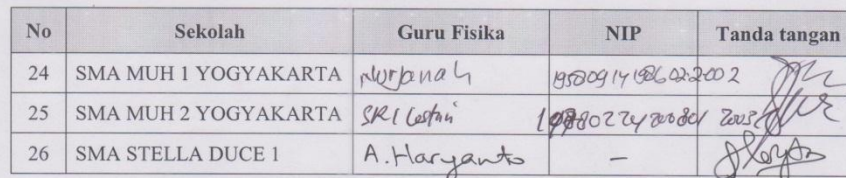 No Sekolah Guru Fisika NIP Tanda tangan
24 SMA MUH 1 YOGYAKARTA Nurjanah 195809141986022002
25 SMA MUH 2 YOGYAKARTA SRI Lestari
26 SMA STELLA DUCE 1 A. Haryanto –